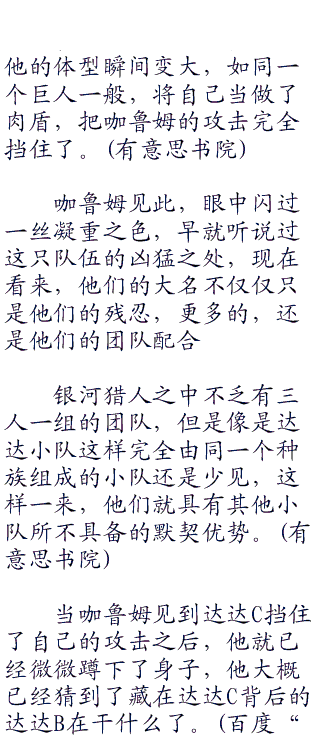 他的体型瞬间变大，如同一
个巨人一般，将自己当做了
肉盾，把咖鲁姆的攻击完全
挡住了。(有意思书院)
咖鲁姆见此，眼中闪过
一丝凝重之色，早就听说过
这只队伍的凶猛之处，现在
看来，他们的大名不仅仅只
是他们的残忍，更多的，还
是他们的团队配合
银河猎人之中不乏有三
人一组的团队，但是像是达
达小队这样完全由同一个种
族组成的小队还是少见，这
样一来，他们就具有其他小
队所不具备的默契优势。(有
意思书院)
当咖鲁姆见到达达C挡住
了自己的攻击之后，他就已
经微微蹲下了身子，他大概
已经猜到了藏在达达C背后的
达达B在干什么了。(百度“